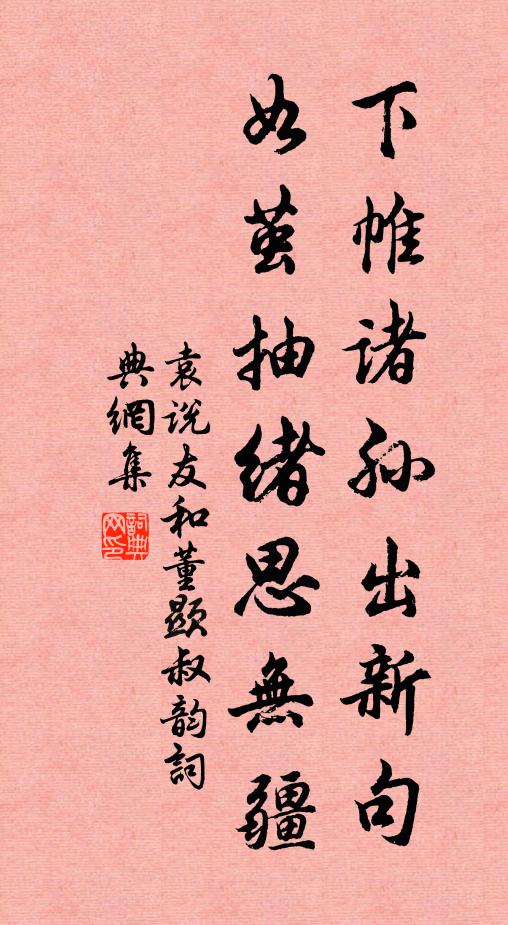 下帷诸孙出新句
如茧抽绪思無疆
袁说友和董顕叔韵詞
典網集
詞典
网印